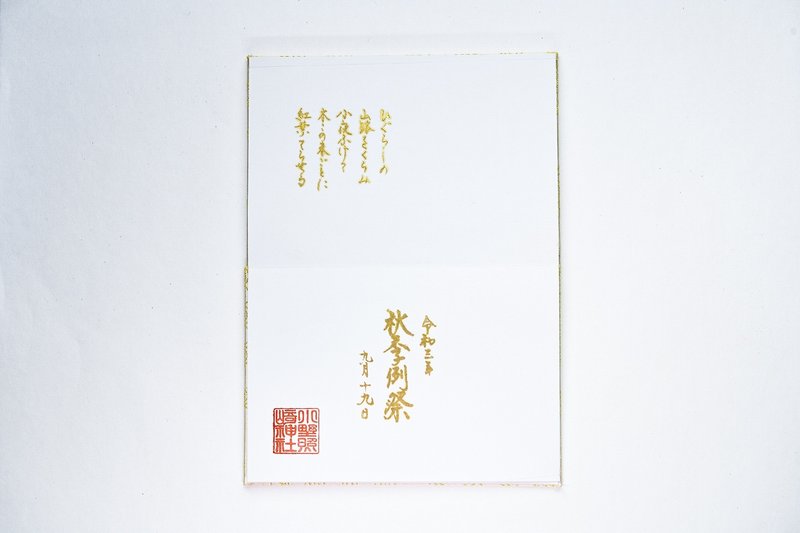 ひぐらしの
山路をくらみ
小夜ふけて
木々の末ごとに
紅葉てらせる
令和三年
秋季例祭
九月十九日
小野照
崎神社